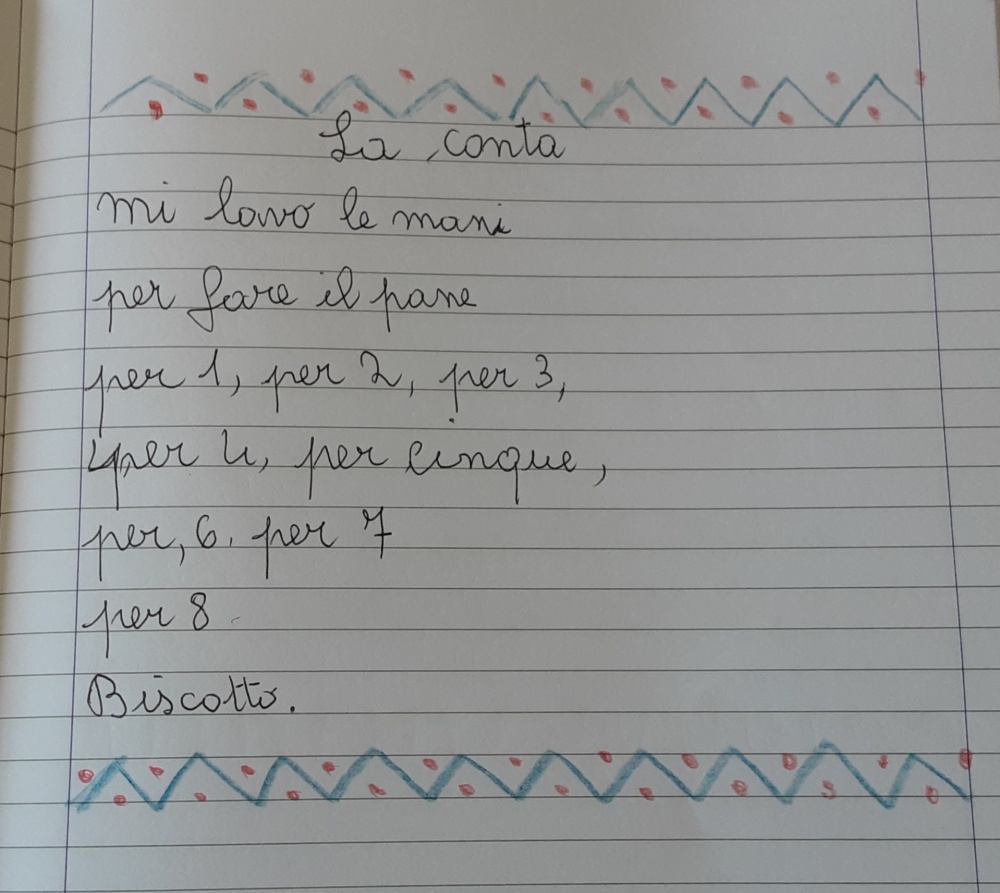 La conta
mi lavo le mani
per fare il pane
per 1, per 2, per 3,
per 4, per cinque,
per, 6. per 7
per 8
Biscotto.